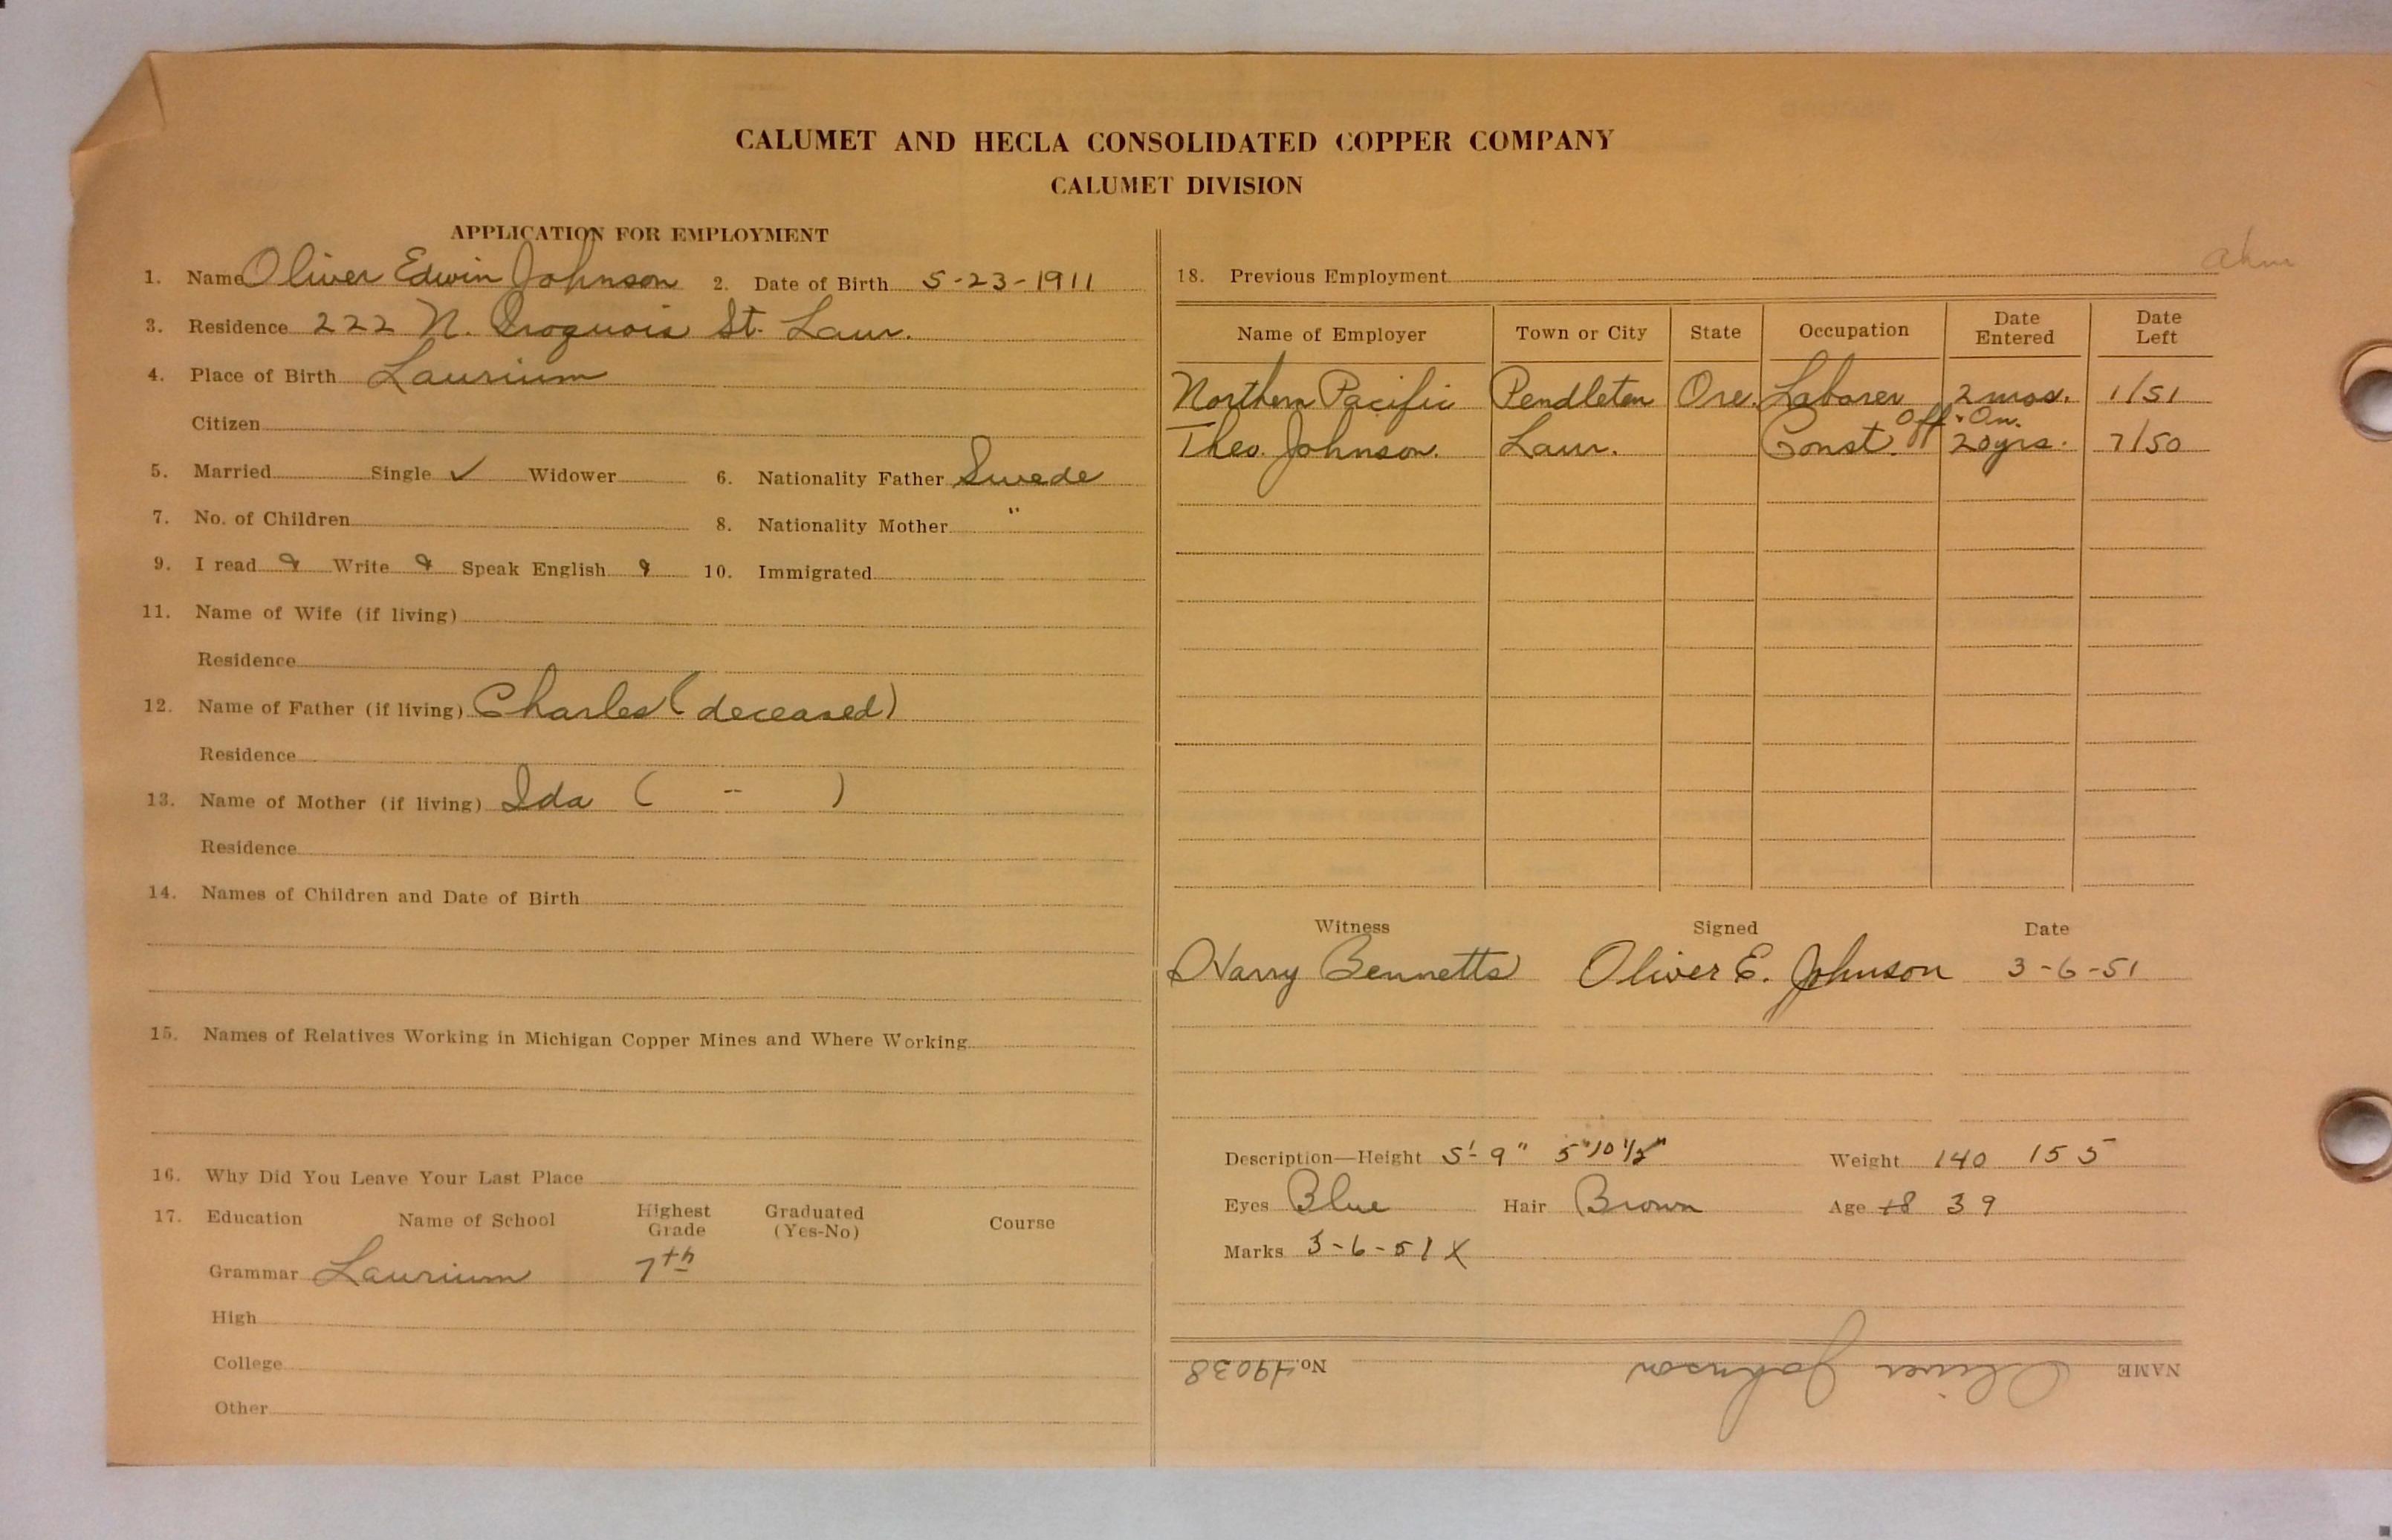 CALUMET AND HECLA CONSOLIDATED COPPER COMPANY
CALUMET DIVISION
APPLICATION FOR EMPLOYMENT
1. Name Oliver Edwin Johnson 2. Date of Birth 5-23-1911
3. Residence 222 N. Iroquois St. Laur.
4. Place of Birth Laurium
Citizen
5. Married Single ✓ Widower 6. Nationality Father Swede
7. No. of Children 8. Nationality Mother "
9. I read Write Speak English 10. Immigrated
11. Name of Wife (if living)
Residence
12. Name of Father (if living) Charles (deceased)
Residence
13. Name of Mother (if living) Ida ( - )
Residence
14. Names of Children and Date of Birth
15. Names of Relatives Working in Michigan Copper Mines and Where Working
16. Why Did You Leave Your Last Place
17. Education Name of School Highest Grade Graduated (Yes-No) Course
Grammar Laurium 7th
High
College
Other
18. Previous Employment
Name of Employer Town or City State Occupation Date Entered Date Left
Northern Pacific Pendleton Ore. Laborer 2 mos. 1/51
Off-On.
Theo. Johnson. Laur. Const. 20 yrs. 7/50
Witness Signed Date
Harry Bennetts Oliver E. Johnson 3-6-51
Description—Height 5'-9" 5'10 1/2" Weight 140 155
Eyes Blue Hair Brown Age 39
Marks 3-6-51 X
NAME Oliver Johnson No. 49038